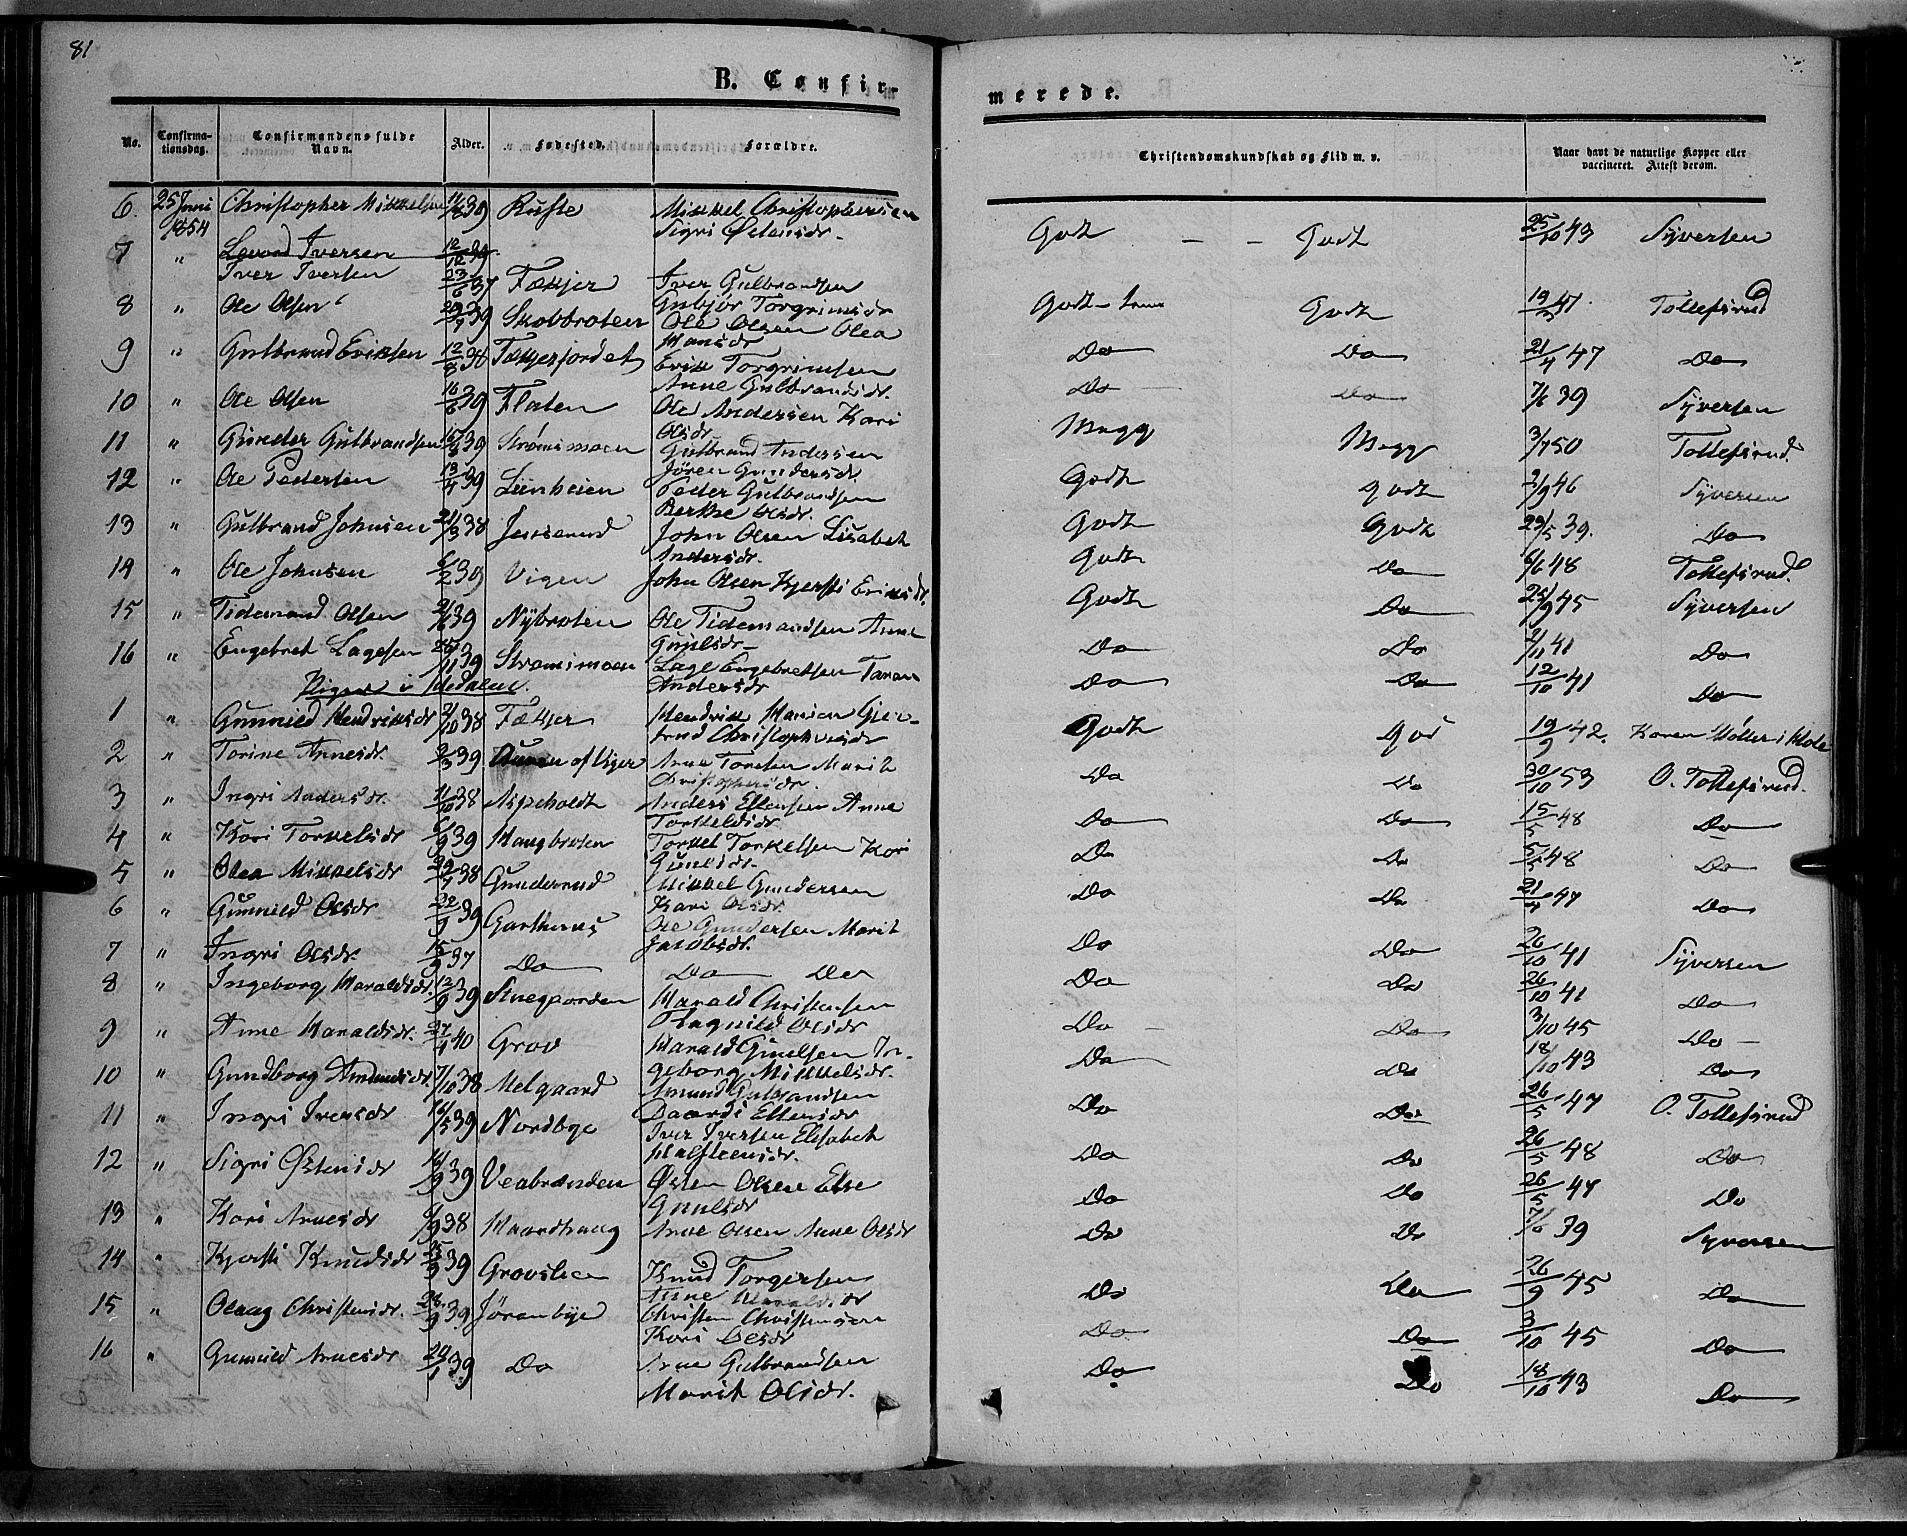 81
B. Confir-
merede.
No.
Confirma-
tionsdag.
Confirmandens fulde
Navn.
Alder.
Fødested.
Forældre.
Christendomskundskab og Flid m. v.
Naar havt de naturlige Kopper eller
vaccineret. Attest derom.
6. 25 Juni Christopher Mikkelsen 39 Ruste Mikkel Christophersen
1854 Sigri Østensdr.
Godt - - Godt 25/10 43 Syversen
7 " Iver Iversen 23/6 37 Fækjer Iver Gulbrandsen
Gubjør Torgrimsdr
Godt Godt 19/ 41 Tollefsrud
8 " Ole Olsen 39 Skobbroten Ole Olsen Olea
Hansdr
Do Do 21/4 47 Do
9 " Gulbrand Eriksen 12/8 38 Fækjerjordet Erik Torgrimsen
Anne Gulbrandsdr.
Do Do 7/6 39 Syversen
10 " Ole Olsen 16/6 39 Flaten Ole Andersen Kari
Olsdr
Megg Megg 3/7 50 Tollefsrud.
11 " Gunder Gulbrandsen 39 Strømsmoen Gulbrand Andersen
Jøren Gundersdr.
Godt godt 2/9 46 Syversen
12 " Ole Pedersen 13/4 39 Leinheien Peder Gulbrandsen
Berthe Olsdr.
Godt Godt 23/5 39. Do
13 " Gulbrand Johnsen 21/3 38 Jensrud John Olsen Lisabeth
Andersdr.
Godt Do 6/6 48 Tollefsrud.
14 " Ole Johnsen 6/2 39 Vigen John Olsen Kjersti Eriksdr.
Godt Do 25/9 45 Syversen
15 " Tidemand Olsen 39 Nybroten Ole Tidemandsen Anne
Gunlsdr
Do Do 2/11 41 Do
16 " Engebret Lagesen 28/11 39 Strømsmoen Lage Engebretsen Taran
Andersdr
Do Do 12/10 41 Do
Piger i Hedalen.
1 " Gunnild Hendriksdr 2/10 38 Fækjer Hendrik Hansen Gjer-
trud Christophersdr
Godt God 19/9 42. Karen Møller i Hole
2 " Torine Arnesdr. 2/3 39 af Viger Arne Torsten Marit
Christophersdr.
Do Do 30/10 53 O. Tollefsrud.
3 " Ingri Andersdr. 11/10 38 Aspeholdt Anders Ellensen Anne
Torkeldsdr.
Do Do 15/5 48 Do
4 " Kari Torkelsdr 6/9 39 Haugbroten Torkel Torkelsen Kari
Gunlsdr.
Do Do 5/5 48 Do
5 " Olea Mikkelsdr 38 Gunderrud Mikkel Gundersen
Kari Olsdr.
Do Do 21/4 47 Do
6 " Gunnild Olsdr 22/9 39 Garthus Ole Gundersen Marit
Jacobsdr.
Do Do 26/10 41 Syversen
7 " Ingri Olsdr. 15/9 37 Do Do Do
Do Do 26/10 41 Do
8 " Ingeborg Haraldsdr. 12/9 39 Stuegaarden Harald Christensen
Ragnild Olsdr
Do Do 3/10 45 Do
9 " Anne Haraldsdr. 27/1 40 Grov Harald Gunelsen In-
geborg Mikkelsdr.
Do Do 18/10 43 Do
10 " Gundborg Amundsdr. 7/10 38 Melgaard Amund Gulbrandsen
Gaardi Ellensdr
Do Do 26/5 47 O. Tollefsrud
11 " Ingri Iversdr 16/5 39 Nordbye Iver Iversen Elisabeth
Halsteensdr.
Do Do 26/5 48 Do
12 " Sigri Østensdr 14/9 39 Veabraaden Østen Olsen Else
Gunlsdr
Do Do 26/5 47 Do
13 " Kari Arnesdr 6/9 38 Haardhaug Arne Olsen Anne Olsdr
Do Do 7/6 39 Syversen
14 " Kjersti Knudsdr 25/9 39 Grovslien Knud Torgersen
Anne Haraldsdr
Do Do 26/9 45 Do
15 " Olaug Christensdr. 28/9 39 Jøranbye Christen Christensen
Kari Olsdr
Do. Do 3/10 45 Do
16 " Gunnild Arnesdr 20/1 39 Do Arne Gulbrandsen
Marit Olsdr.
Do Do 18/10 43 Do